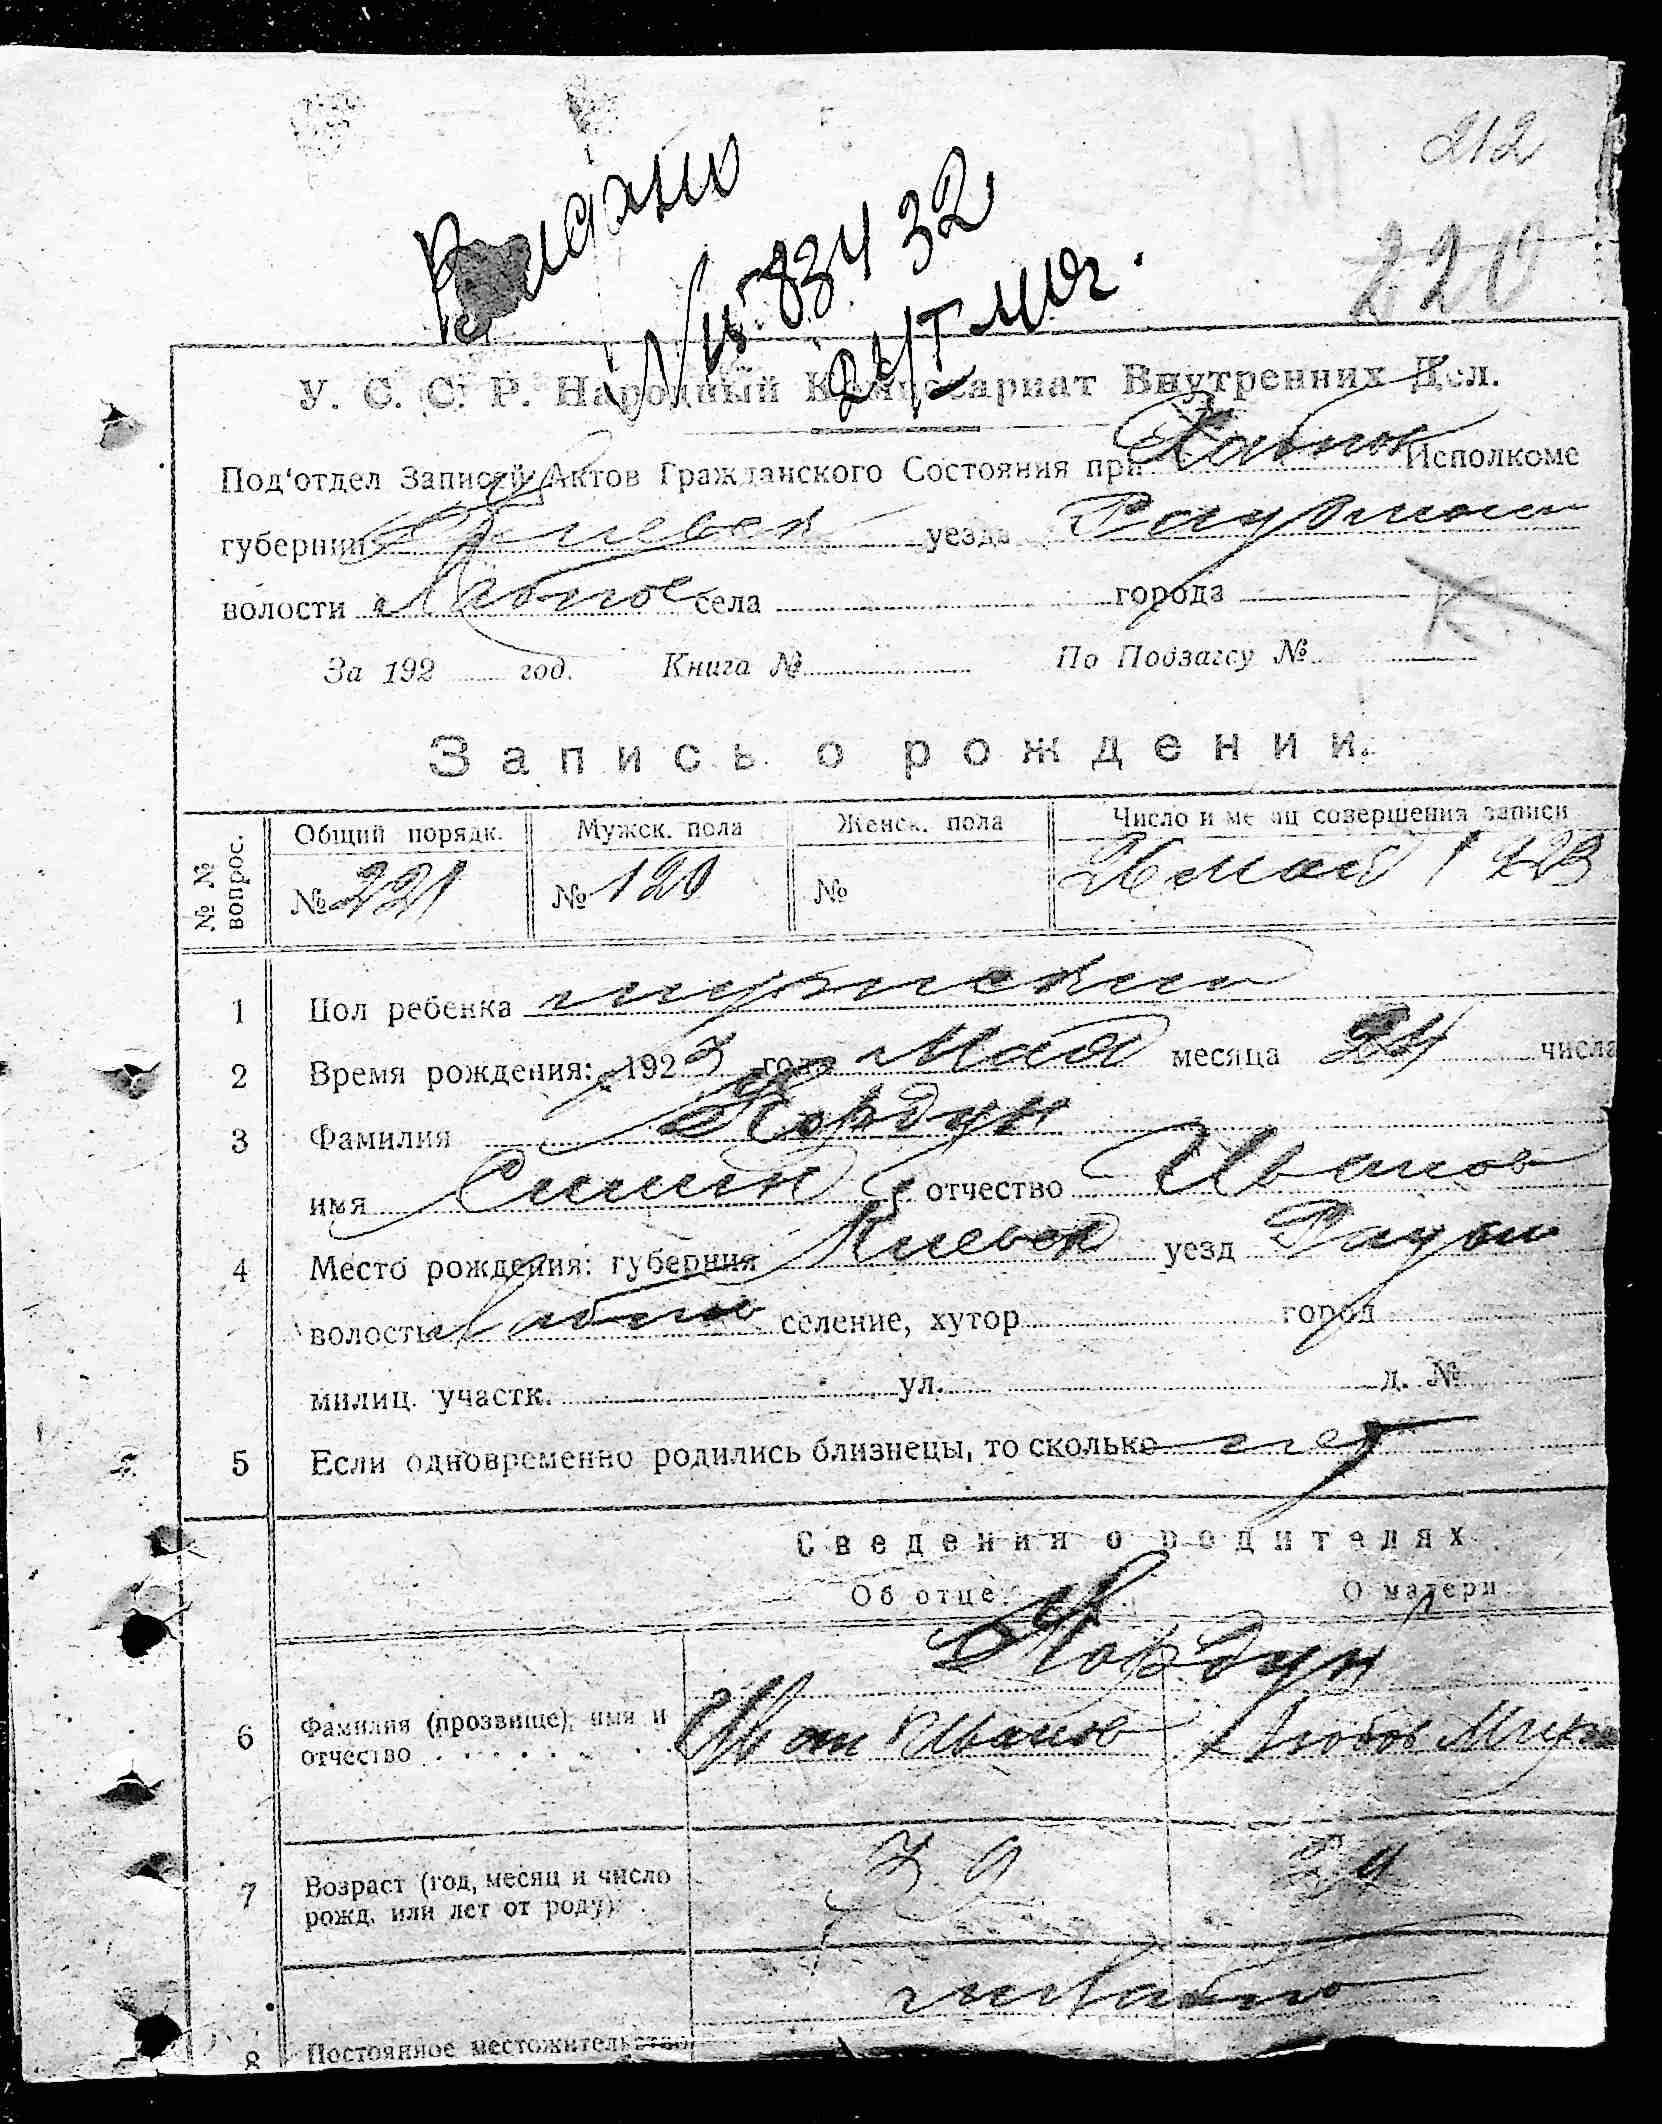 212
220
Видано
№ 83432
У. С. С. Р. Народный Комиссариат Внутренних Дел.
Под'отдел Записей Актов Гражданского Состояния при Хабнок Исполкоме
губернии Киевск уезда
волости Хабнос села города
К
За 192 год. Книга № По Подзагсу №
Запись о рождении.
№ № вопрос. Общий порядк. Мужск. пола Женск. пола Число и месяц совершения записи
№ 221 № 120 № 26 мая 1923
1 Пол ребенка мужской
2 Время рождения: 1923 год Мая месяца 24 числа
3 Фамилия Кордун
имя отчество Иванов
4 Место рождения: губерния Киевск уезд
волость селение, хутор город
милиц. участк. ул. д. №
5 Если одновременно родились близнецы, то сколько нет
Сведения о родителях
Об отце. О матери
Кордун
6 Фамилия (прозвище), имя и отчество Иван Иванов Любов
7 Возраст (год, месяц и число рожд. или лет от роду) 39 24
8 Постоянное местожительство